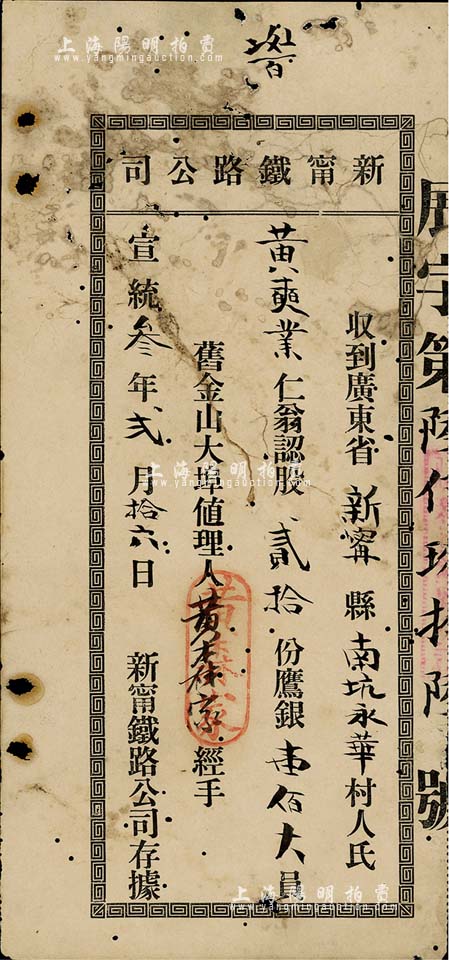 新甯鐵路公司
收到廣東省新甯縣南坑永華村人氏
黃奭業仁翁認股貳拾份鷹銀壹佰大員
舊金山大埠值理人黃桂家經手
宣統叁年弍月拾六日
新甯鐵路公司存據
上海陽明拍賣
www.yangmingauction.com
上海陽明拍賣
www.yangmingauction.com
上海陽明拍賣
www.yangmingauction.com